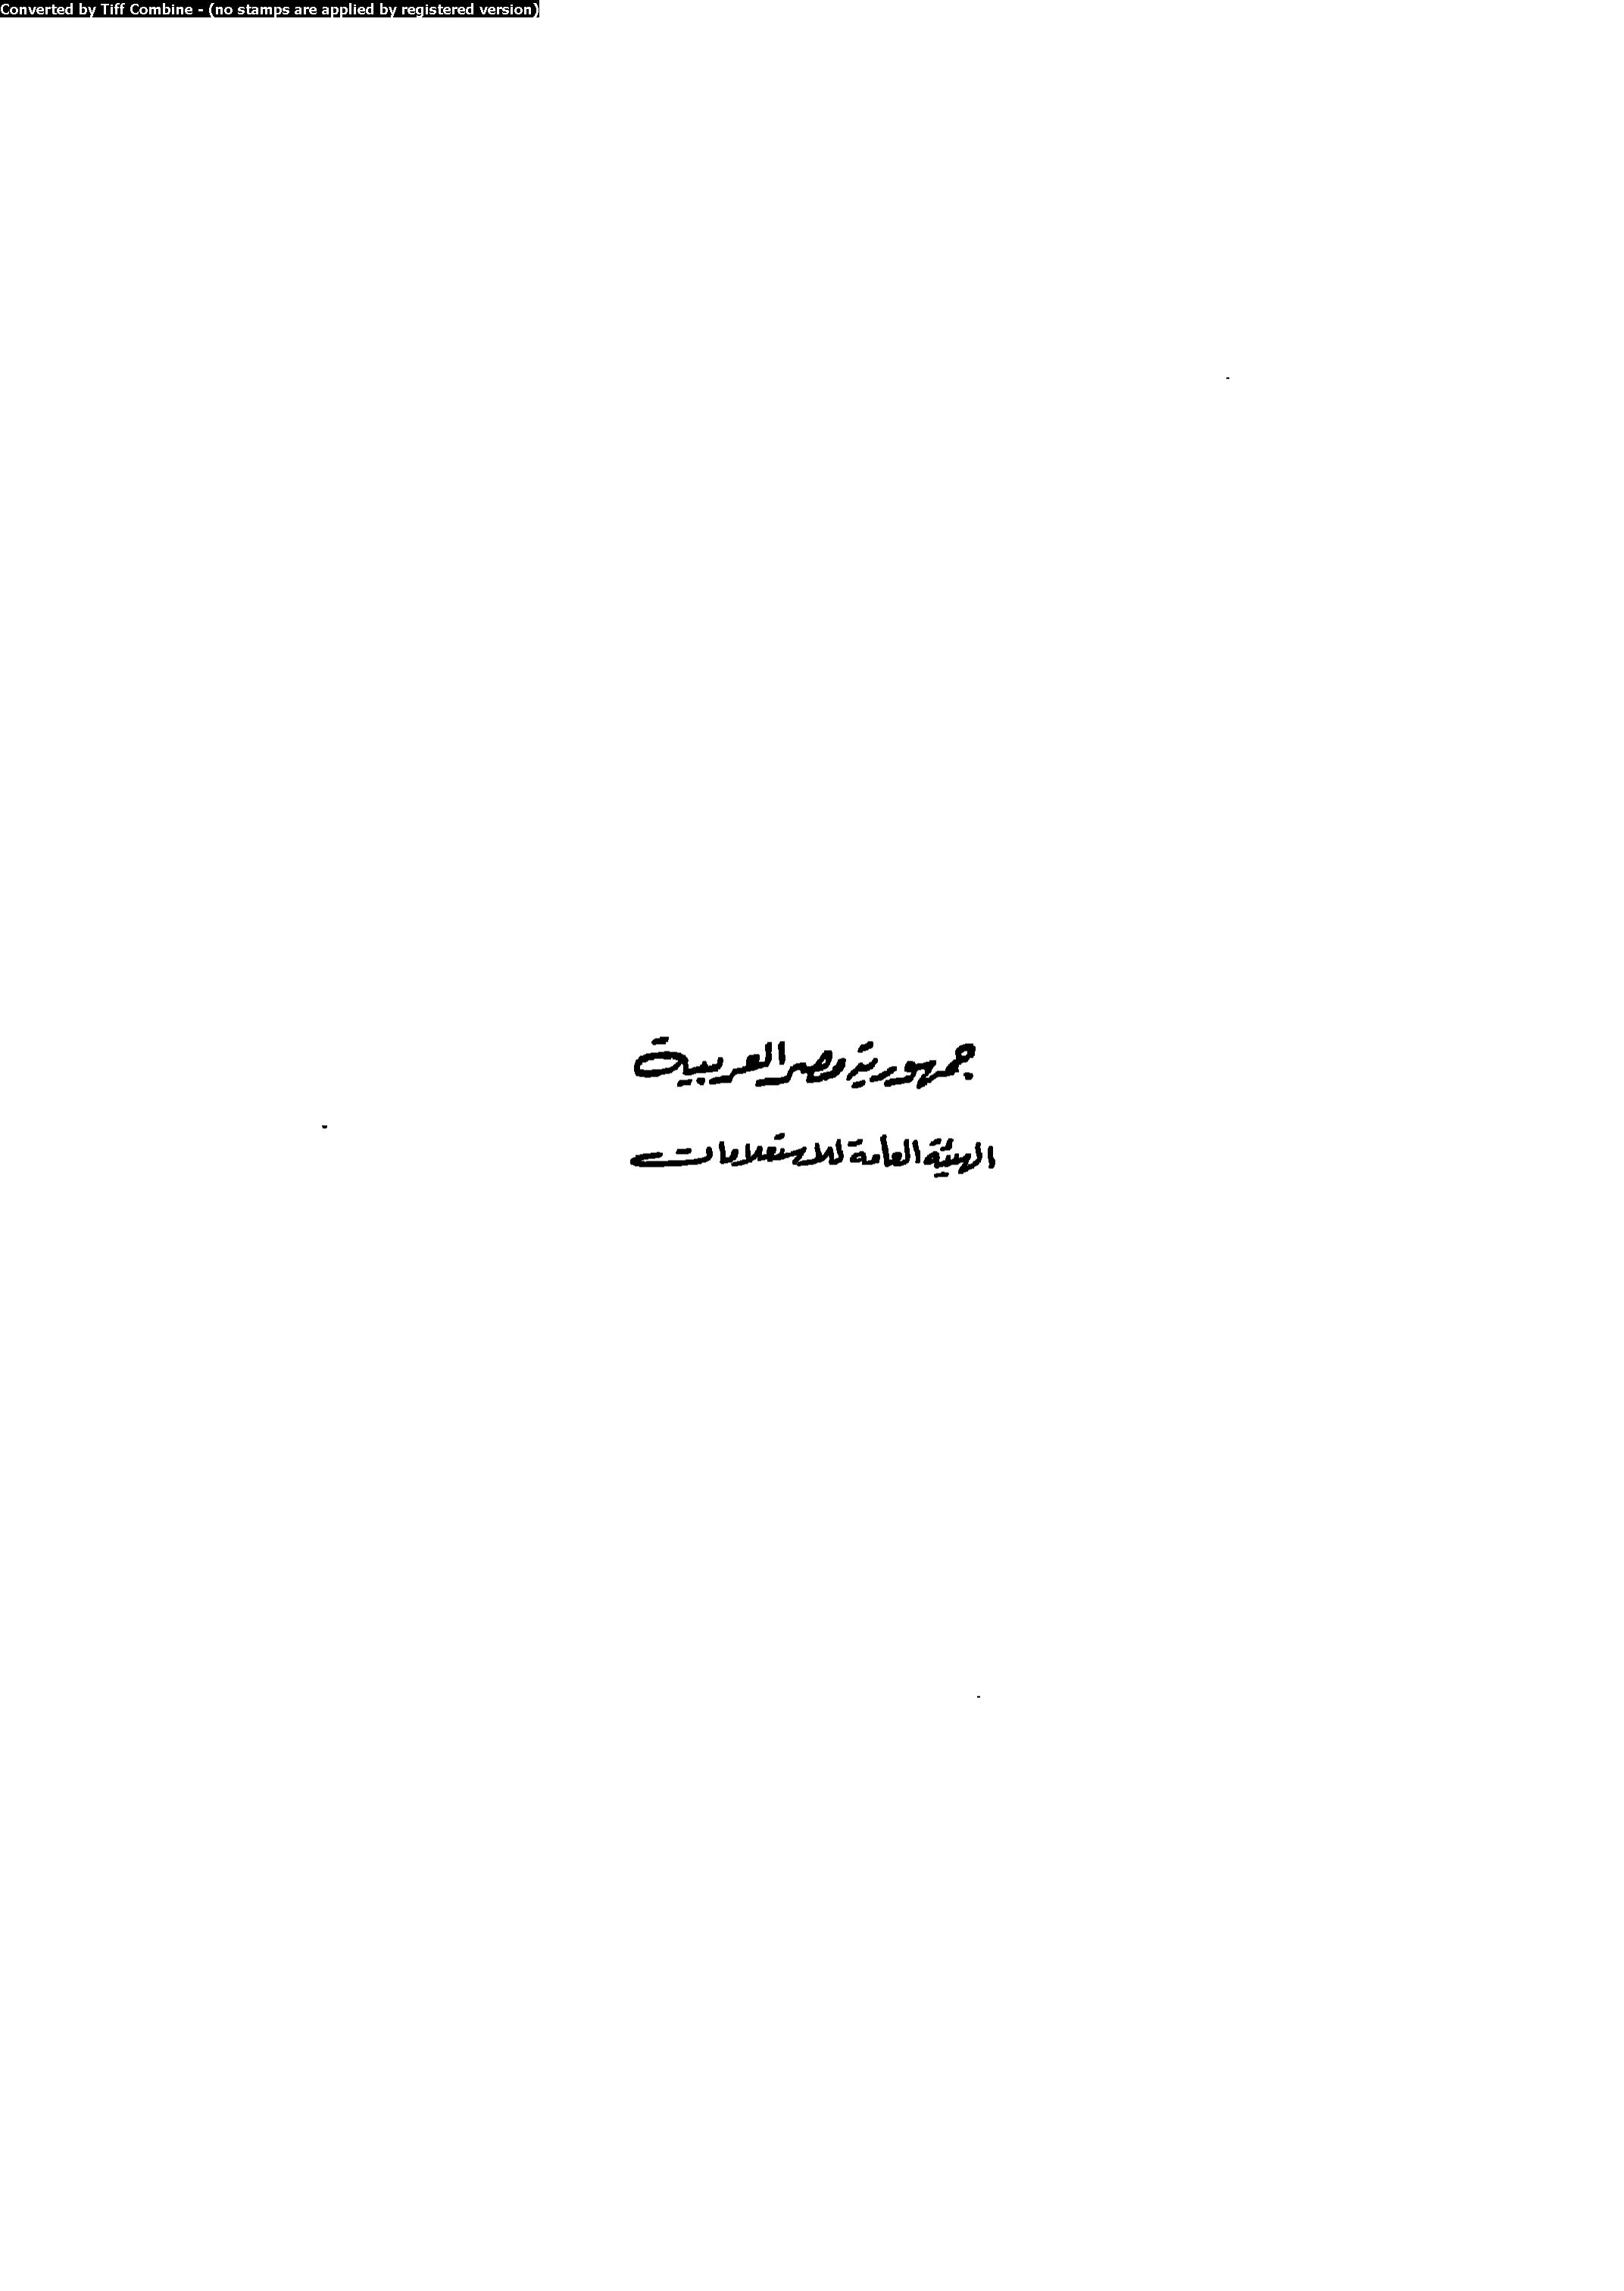 Converted by Tiff Combine - (no stamps are applied by registered version)
جمهورية مصر العربية
الهيئة العامة للاستعلامات